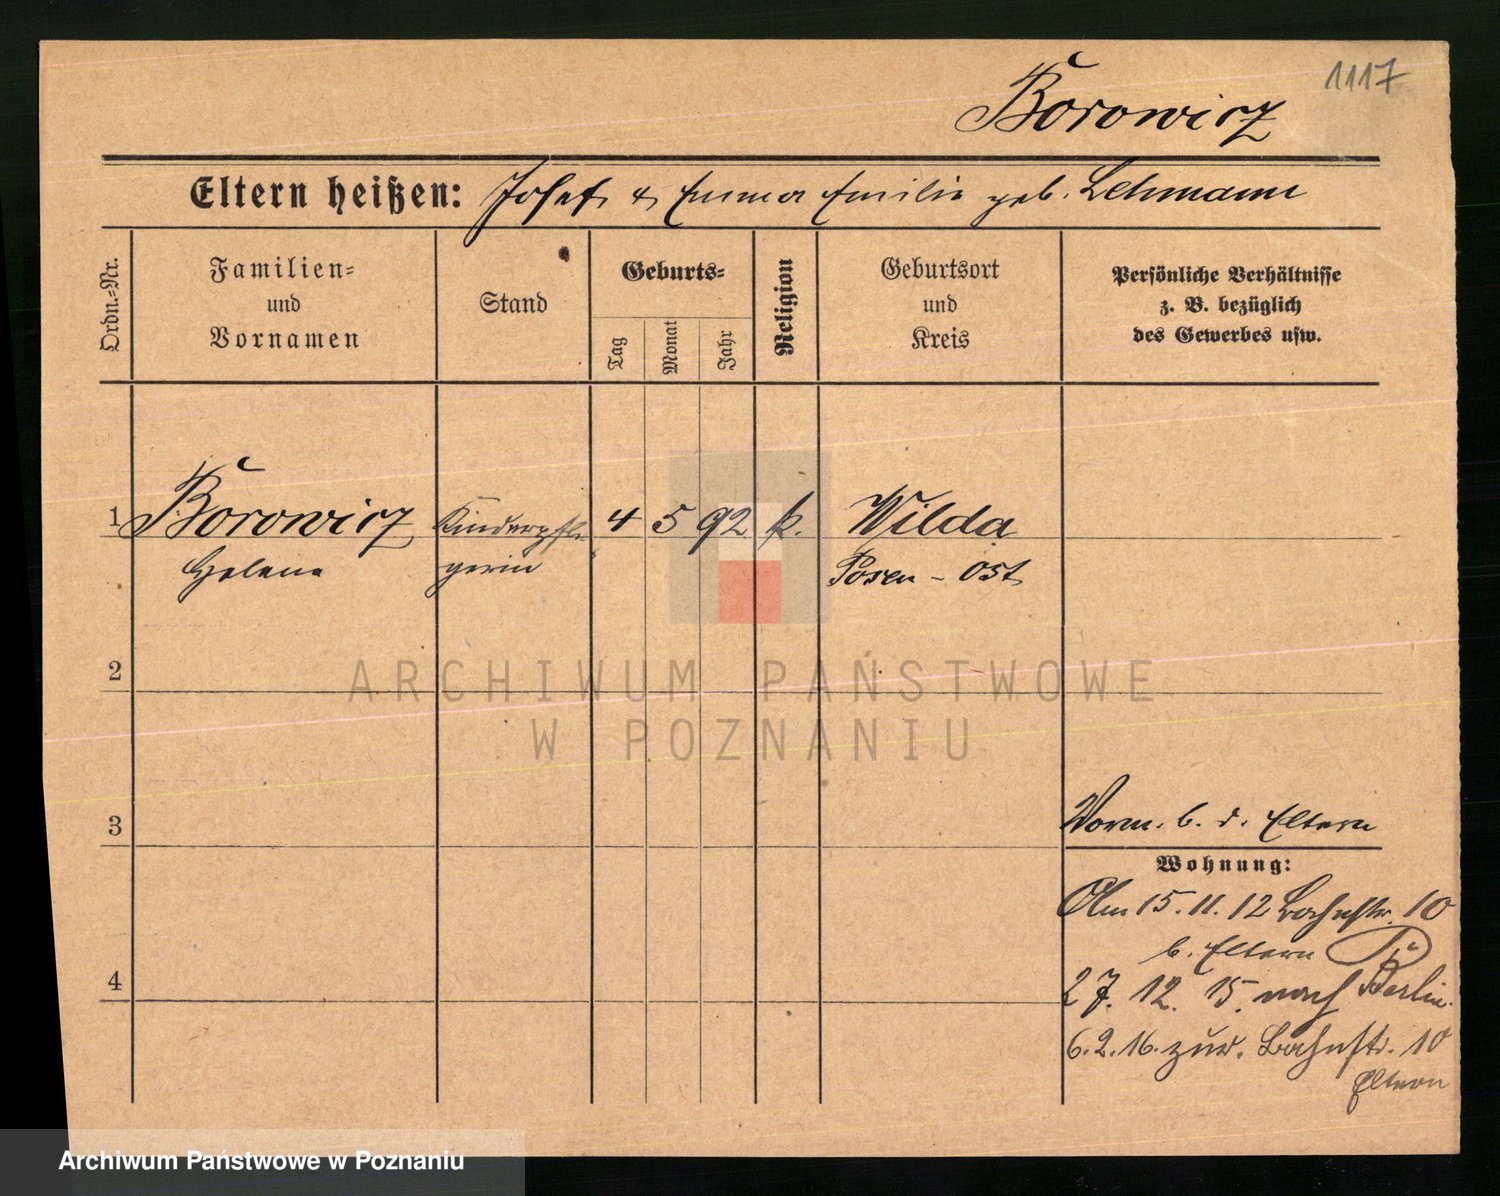 1117
Borowicz
Eltern heißen: Josef & Emma Emilie geb. Lehmann
Ordn.-Nr.
Familien-
und
Vornamen
Stand
Geburts-
Tag
Monat
Jahr
Religion
Geburtsort
und
Kreis
Persönliche Verhältnisse
z. B. bezüglich
des Gewerbes usw.
1 Borowicz Kinderpfle- 4 5 92 k. Wilda
Helene gerin Posen - Ost
2
ARCHIWUM PAŃSTWOWE
W POZNANIU
3
Worm. b. d. Eltern
Wohnung:
15.11.12 Bahnstr. 10
b. Eltern
4
27.12.15. nach Berlin.
6.2.16. zur. Bahnstr. 10
Eltern
Archiwum Państwowe w Poznaniu